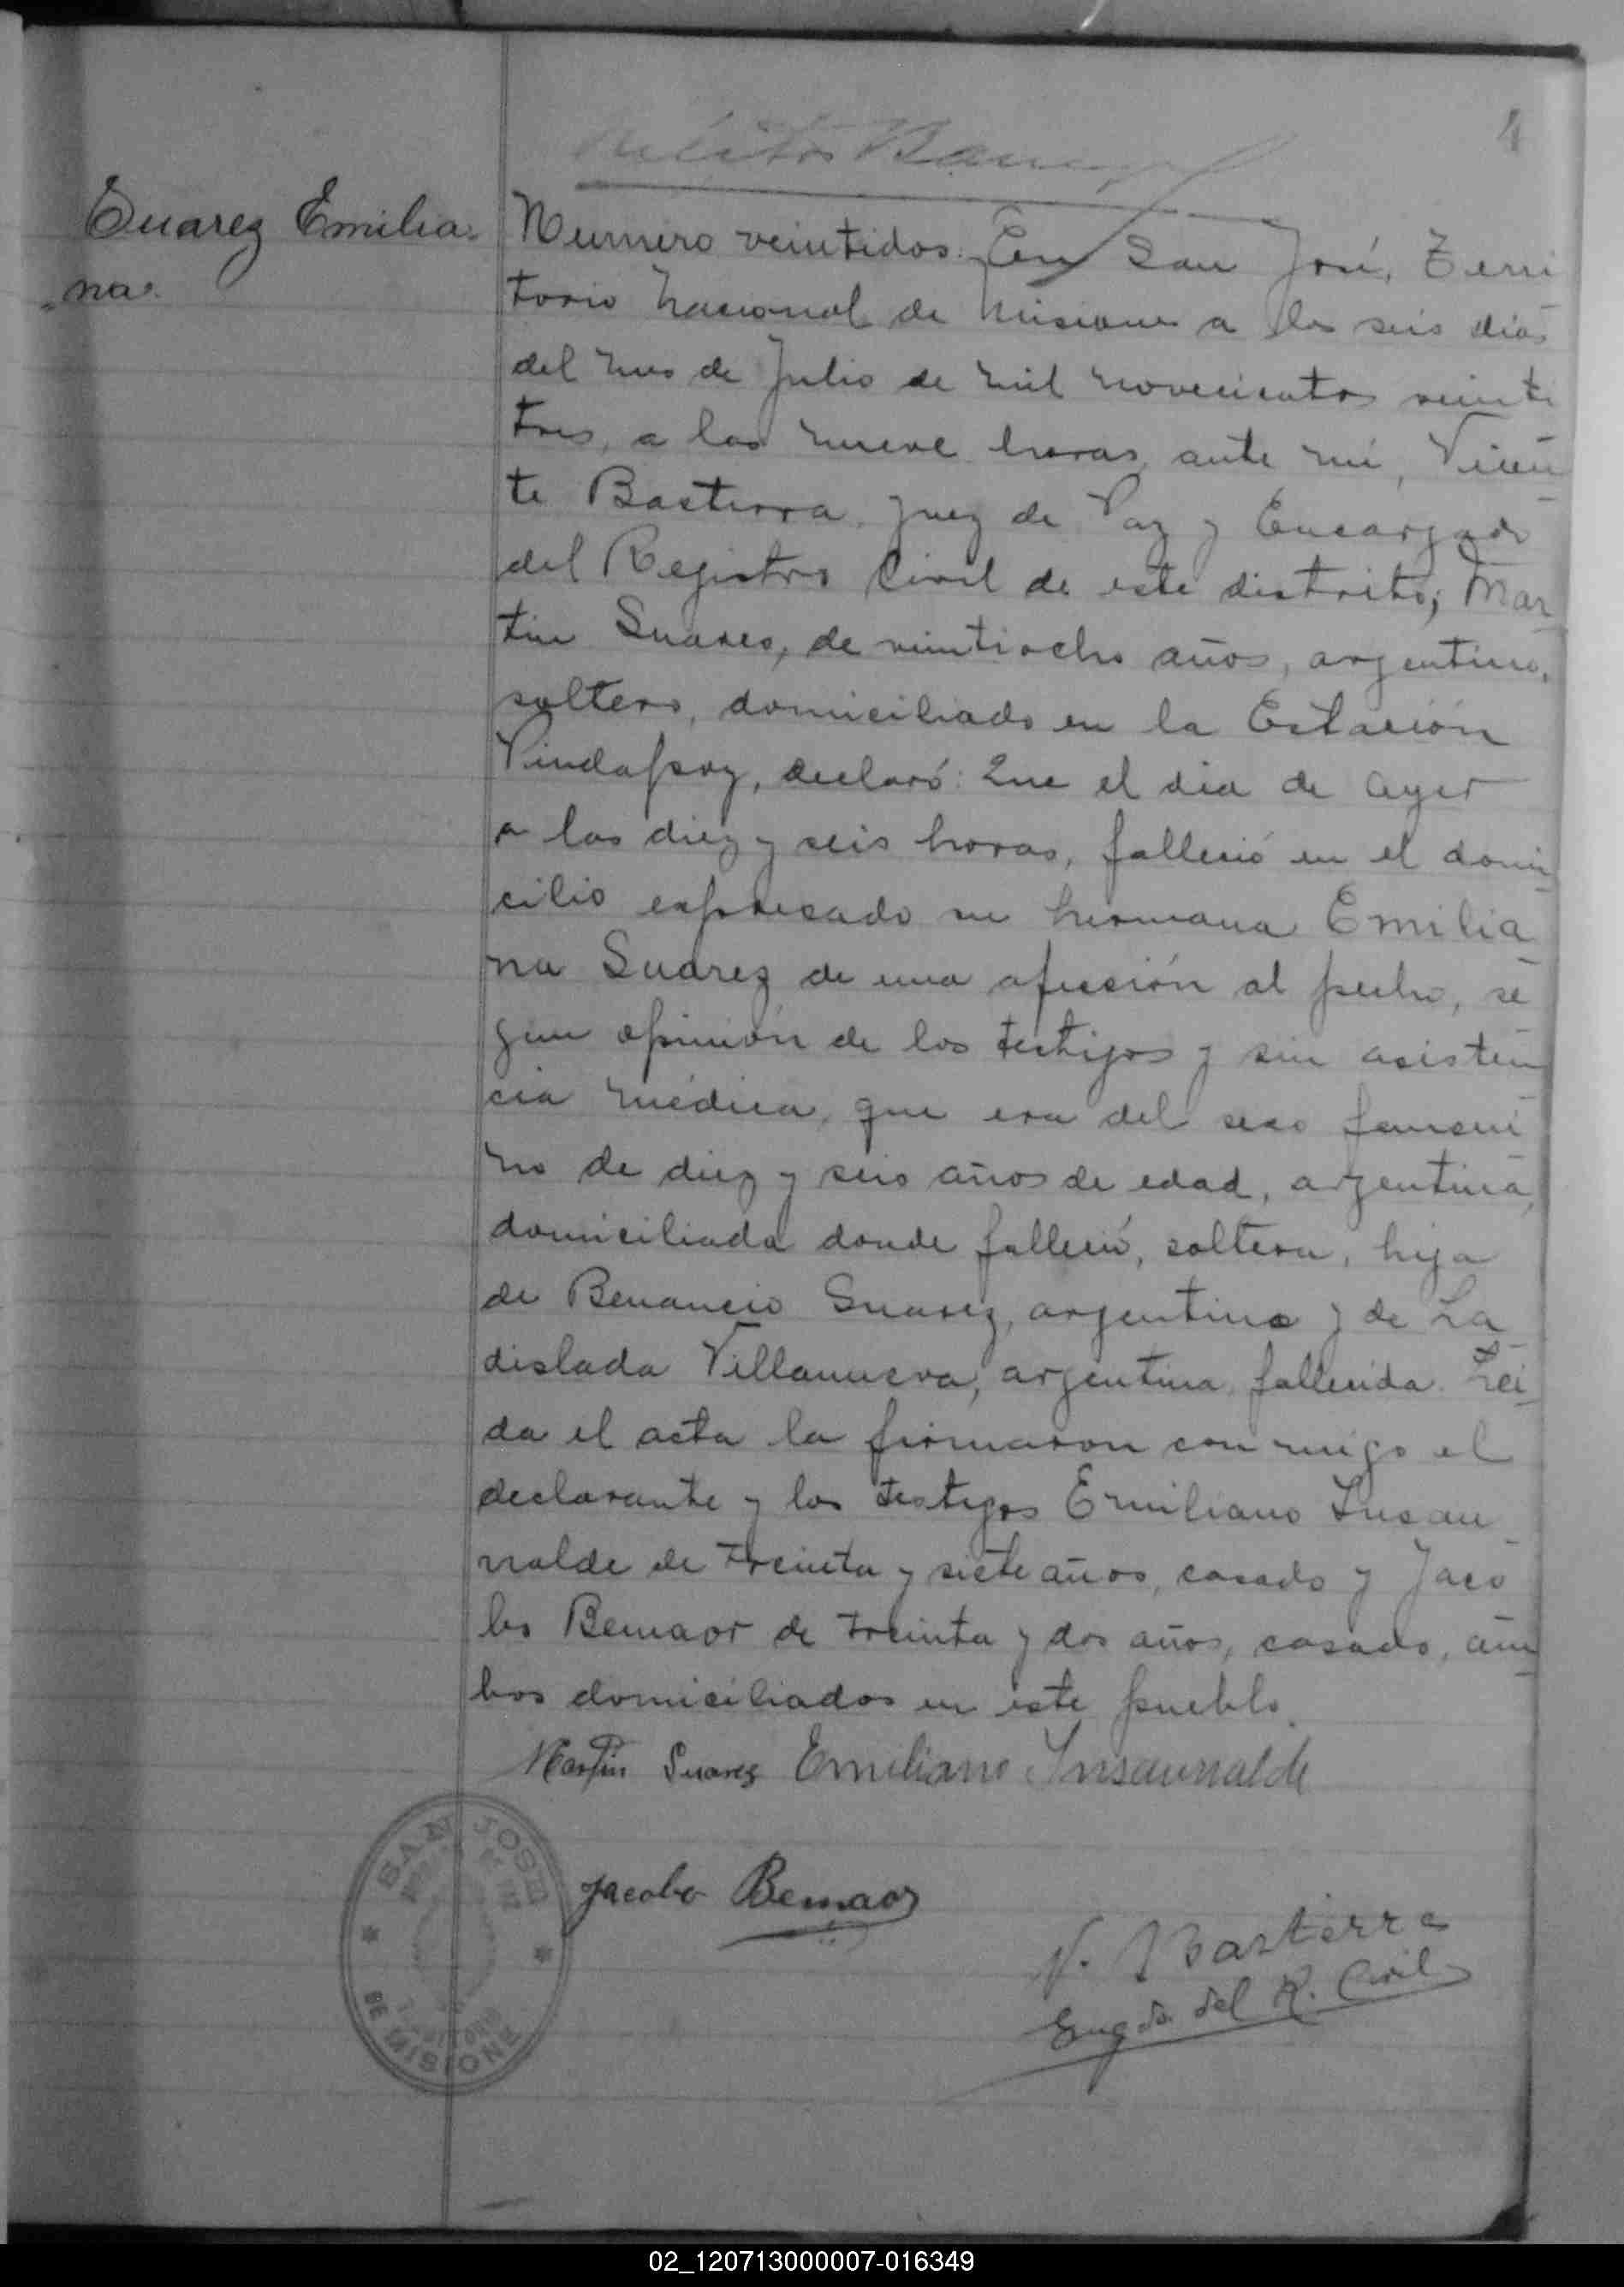 4
Suarez Emilia-
-na.
Numero veintidos. En San José, Terri
torio Nacional de Misiones a los seis dias
del mes de Julio de mil novecientos veinti
tres, a las nueve horas, ante mi, Vicen
te Basterra, Juez de Paz y Encargado
del Registro Civil de este distrito; Mar
tin Suares, de veintiocho años, argentino,
soltero, domiciliado en la Estación
Pindapoy, declaró: Que el dia de ayer
a las diez y seis horas, falleció en el domi
cilio expresado su hermana Emilia
na Suarez de una afección al pecho, se
gun opinión de los testigos y sin asisten
cia médica, que era del sexo femeni
no de diez y seis años de edad, argentina,
domiciliada donde falleció, soltera, hija
de Benancio Suarez, argentino y de La
dislada Villanueva, argentina, fallecida. Lei
da el acta la firmaron con migo el
declarante y los testigos Emiliano Insau
rralde de treinta y siete años, casado y Jaco
bo Bemaor de treinta y dos años, casado, am
bos domiciliados en este pueblo.
Martin Suarez Emiliano Insaurralde
Jacobo Bemaor
V. Basterra
Engdo. del R. Civil
SAN JOSE
DE MISIONES
02_120713000007-016349